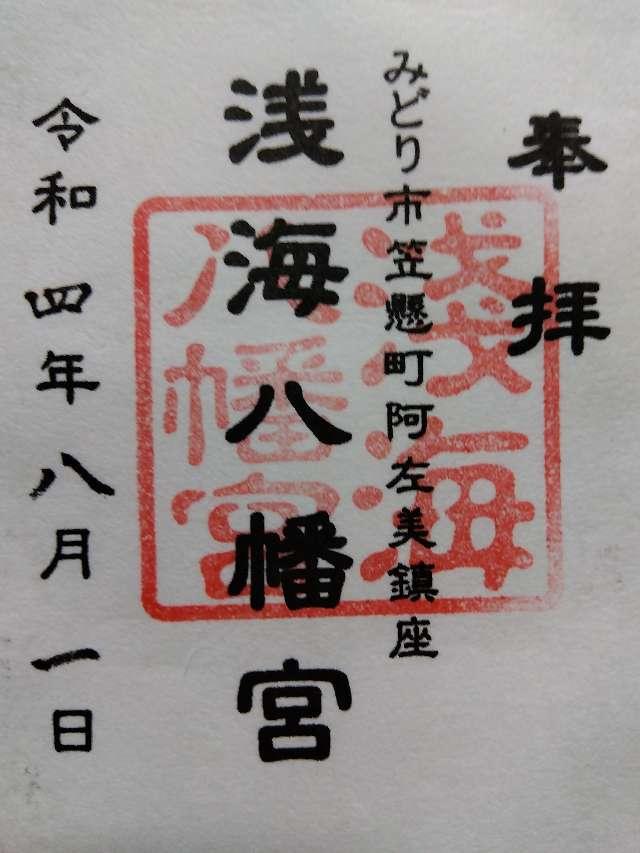 奉拝
みどり市笠懸町阿左美鎮座
浅海八幡宮
浅海
八幡宮
令和四年八月一日